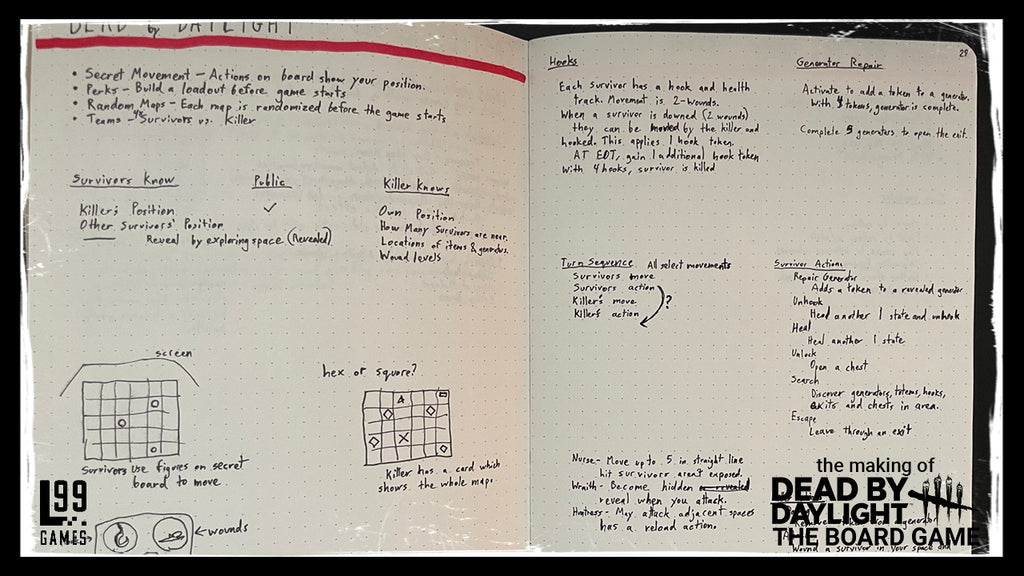 DEAD by DAYLIGHT
• Secret Movement – Actions on board show your position.
• Perks – Build a loadout before game starts
• Random Maps – Each map is randomized before the game starts
• Teams – 4 Survivors vs. Killer
Survivors Know
Killer's Position
Other Survivors' Position
Reveal by exploring space (Revealed)
Public
✓
Killer Knows
Own Position
How Many Survivors are near.
Locations of items & generators.
Wound levels
screen
Survivors use figures on secret
board to move.
hex or square?
Killer has a card which
shows the whole map.
← wounds
L99
GAMES
28
Hooks
Each Survivor has a hook and health
track. Movement is 2-wounds.
When a survivor is downed (2 wounds)
they can be moved by the killer and
hooked. This applies 1 hook token.
AT EOT, gain 1 additional hook token
With 4 hooks, survivor is killed
Generator Repair
Activate to add a token to a generator.
With tokens, generator is complete.
Complete 5 generators to open the exit.
Turn Sequence All select movements
Survivors move
Survivors action
Killer's move
Killer's action
?
Survivor Actions
Repair Generator
Adds a token to a revealed generator
Unhook
Heal another 1 state and unhook
Heal
Heal another 1 state
Unlock
Open a chest
Search
Discover generators, totems, hooks,
Exits and chests in area.
Escape
Leave through an exit
Nurse – Move up to 5 in straight line
hit survivors aren't exposed.
Wraith – Become hidden or revealed.
reveal when you attack.
Huntress – May attack adjacent spaces
has a reload action.
generator
Wound a survivor in your space and
the making of
DEAD BY
DAYLIGHT
THE BOARD GAME